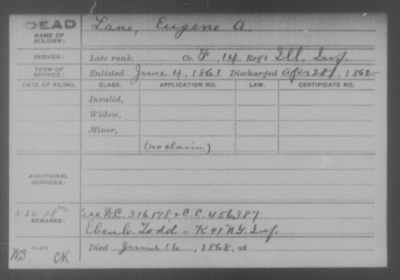 DEAD Lane, Eugene A.
NAME OF SOLDIER:
SERVICE: Late rank, Co. F, 14 Reg't Ill. Inf.
TERM OF SERVICE: Enlisted June 4, 1861 Discharged Apr 28, 1862
DATE OF FILING. CLASS. APPLICATION NO. LAW. CERTIFICATE NO.
Invalid,
Widow,
Minor,
(no claim)
ADDITIONAL SERVICES:
3-20-28 See W.C. 316178 & C.C. 456387
REMARKS: Eben C. Todd - K 91 N.Y. Inf.
Died June 16, 1868, at
WB. CK